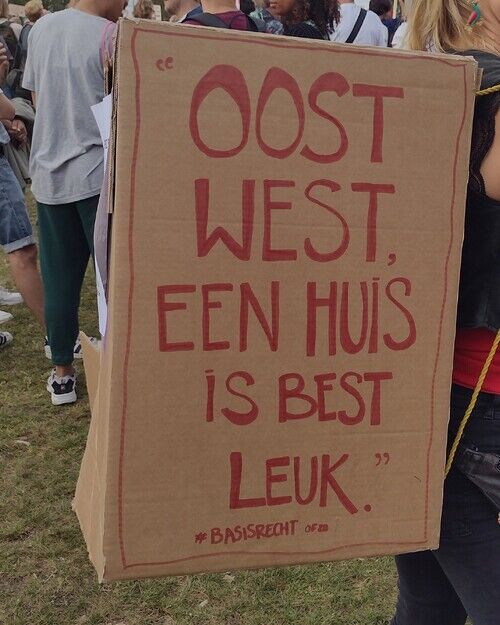 “OOST
WEST,
EEN HUIS
IS BEST
LEUK.”
#BASISRECHT OFZO